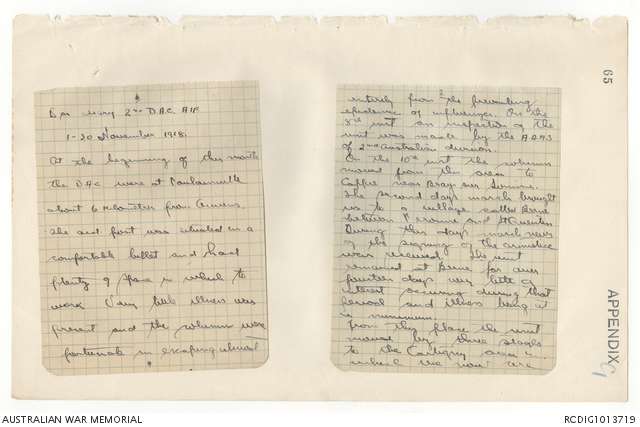 Diary 2nd D.A.C. AIF
1-20 November 1918.
At the beginning of this month
the DAC were at Poulainville
about 6 kilometer from Amiens.
The aid post was situated in a
comfortable billet and had
plenty of space in which to
work Very little illness was
present and the column were
fortunate in escaping almost
65
entirely from the prevailing
epidemic of influenza. On the
8th inst an inspection of the
unit was made by the A.D.M.S
of 2nd Australian division.
On the 10th inst the column
moved from this area to
Cappy near Bray sur Somme.
The second days march brought
us to a village called
between Peronne and St Quentin
During this days march news
of the signing of the armistice
was received. The unit
remained at for over
days very little of
interest occuring during that
period and illness being at
a minimum.
From this place the unit
moved by three stages
to the area in
which we now are
APPENDIX
AUSTRALIAN WAR MEMORIAL
RCDIG1013719